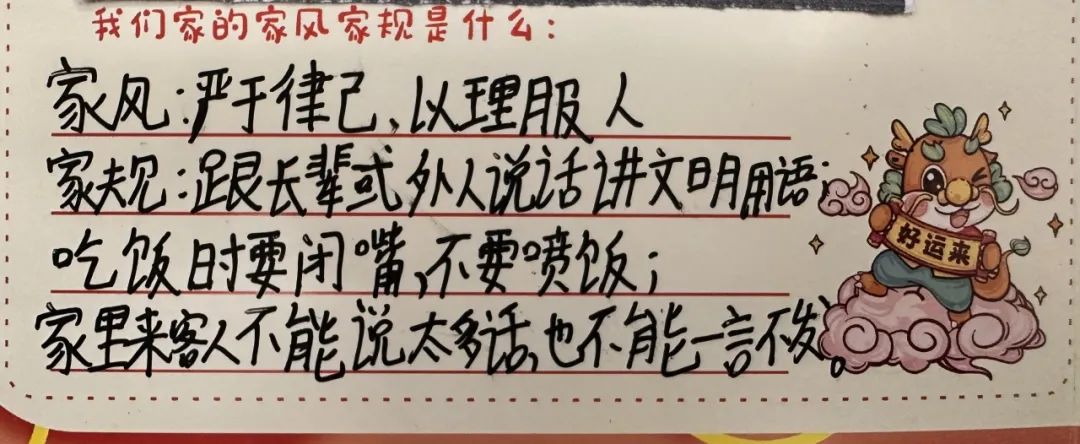 我们家的家风家规是什么:
家风:严于律己、以理服人
家规:跟长辈或外人说话讲文明用语;
吃饭时要闭嘴,不要喷饭;
家里来客人不能说太多话,也不能一言不发。
好运来